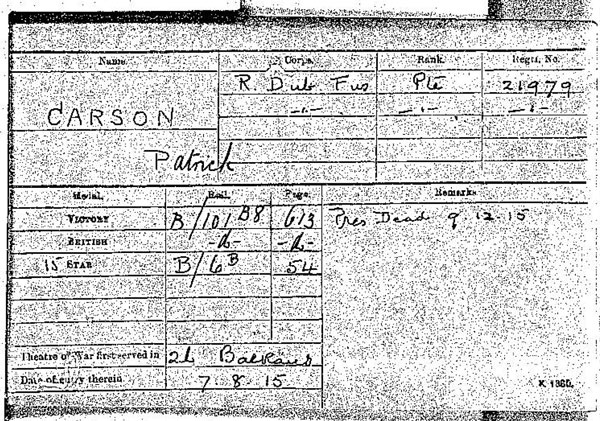 Name. Corps. Rank. Regtl. No.
R. Dub Fus Pte 21979
CARSON —"— —"— —"—
Patrick
Medal. Roll. Page. Remarks.
VICTORY B/101 B8 613 Pres Dead 9.12.15
BRITISH -do- -do-
15 STAR B/6B 54
Theatre of War first served in 2b Balkans
Date of entry therein 7.8.15
K 1380.